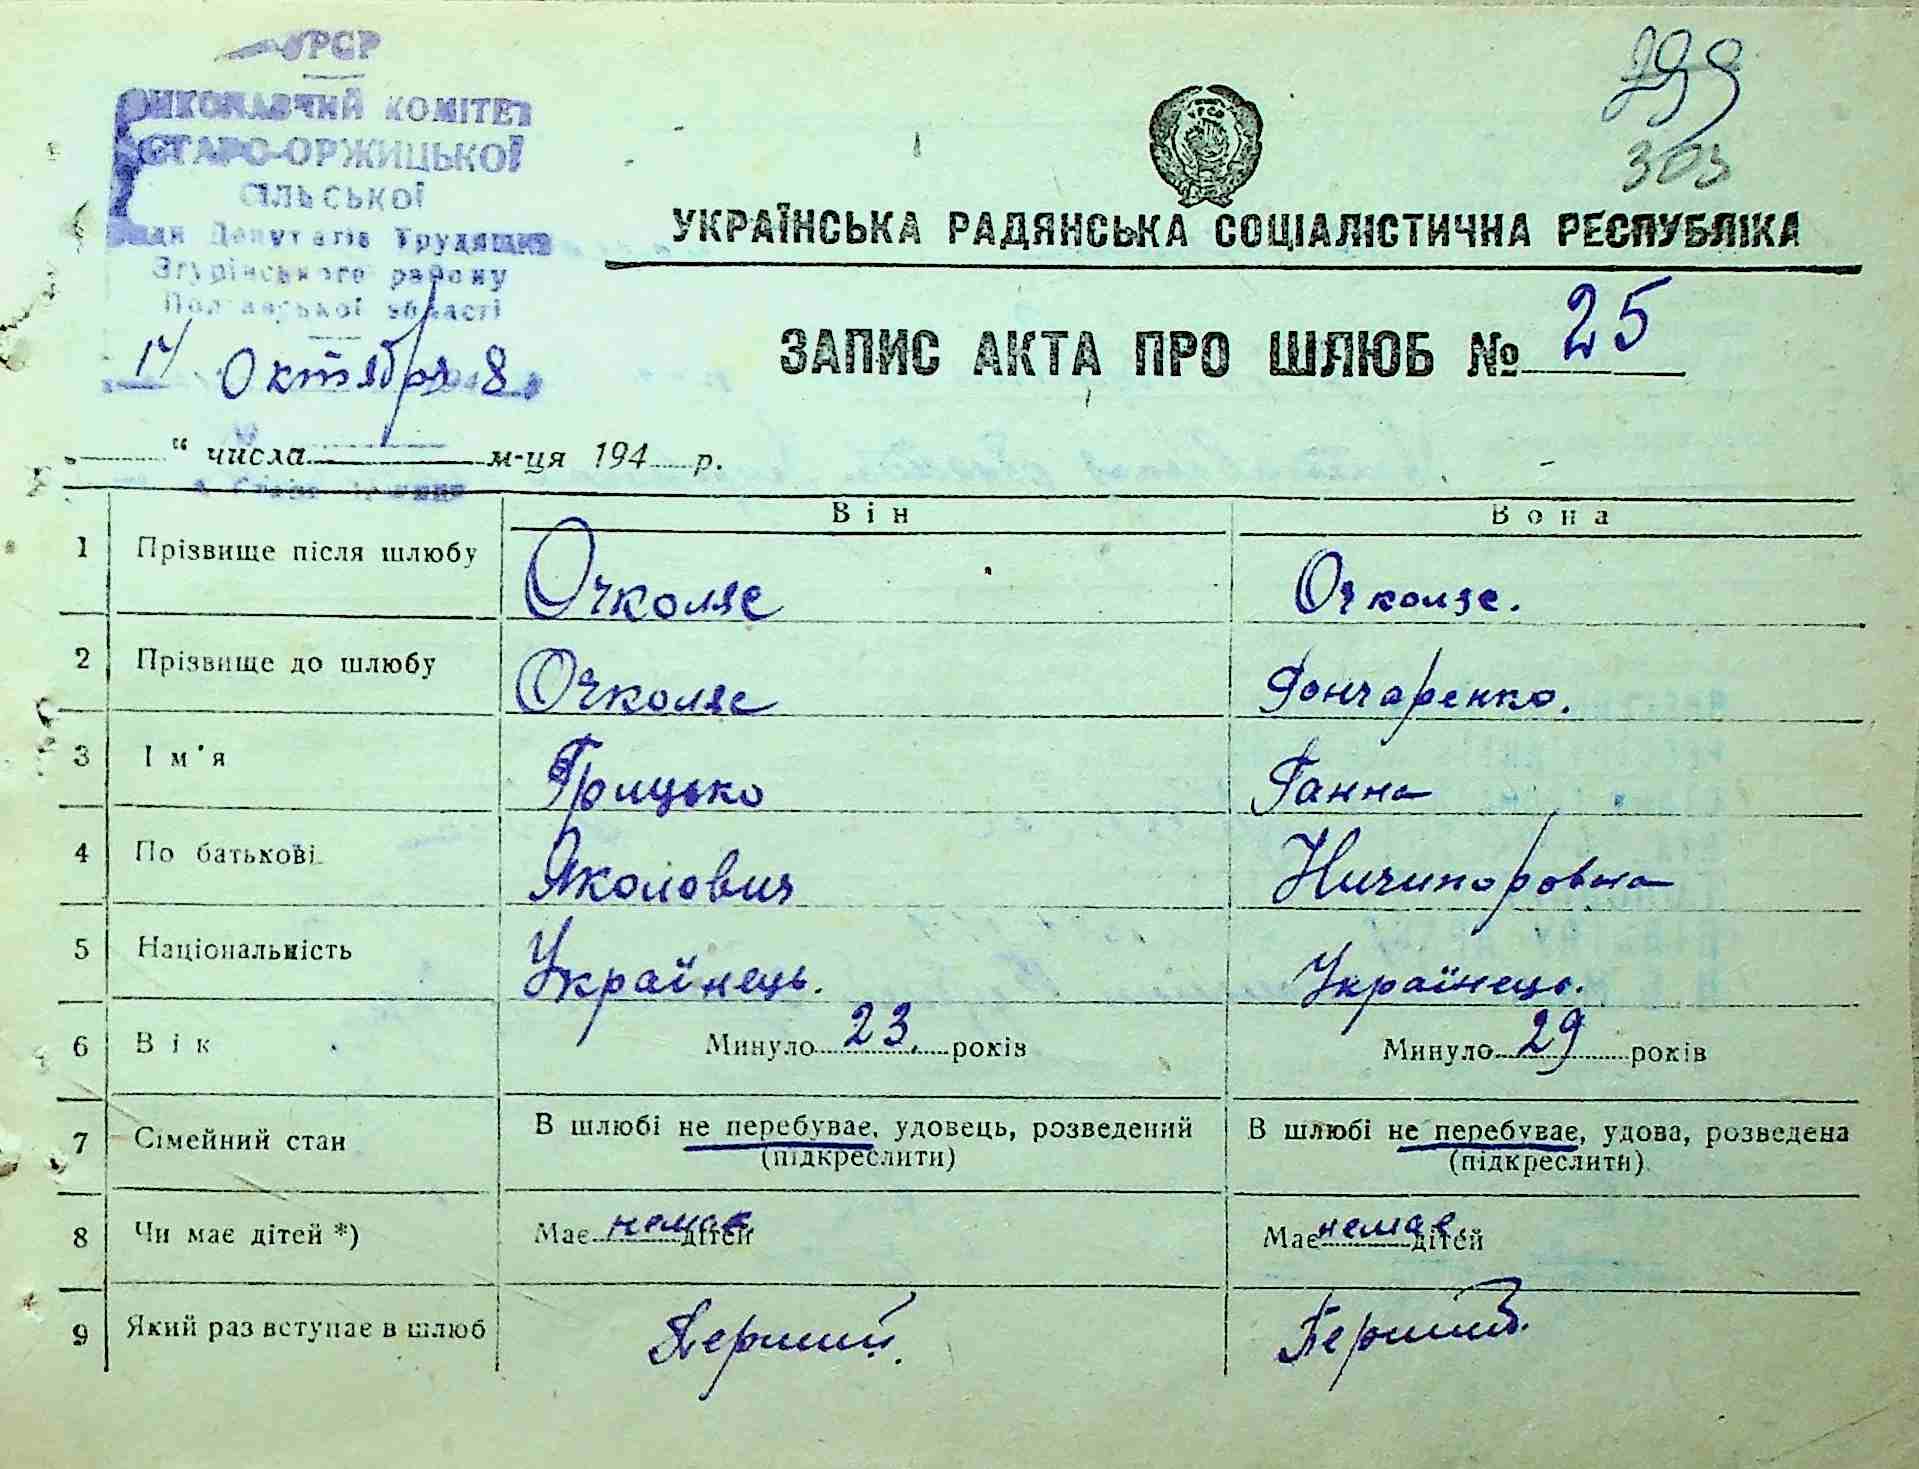 УРСР
ВИКОНАВЧИЙ КОМІТЕТ
СТАРО-ОРЖИЦЬКОЇ
СІЛЬСЬКОЇ
Ради Депутатів Трудящих
Згурівського району
Полтавської області
17 Октября 8
299
303
УРСР
УКРАЇНСЬКА РАДЯНСЬКА СОЦІАЛІСТИЧНА РЕСПУБЛІКА
ЗАПИС АКТА ПРО ШЛЮБ № 25
" числа м-ця 194 р.
Він Вона
1 Прізвище після шлюбу Очколяс Очколяс.
2 Прізвище до шлюбу Очколяс Гончаренко.
3 Ім'я Грицько Ганна
4 По батькові Яколович Ничипоровна
5 Національність Українець. Українець.
6 Вік Минуло 23. років Минуло 29 років
7 Сімейний стан В шлюбі не перебуває, удовець, розведений В шлюбі не перебуває, удова, розведена
(підкреслити) (підкреслити)
8 Чи має дітей *) Має немає дітей Має немає дітей
9 Який раз вступає в шлюб Перший. Перший.